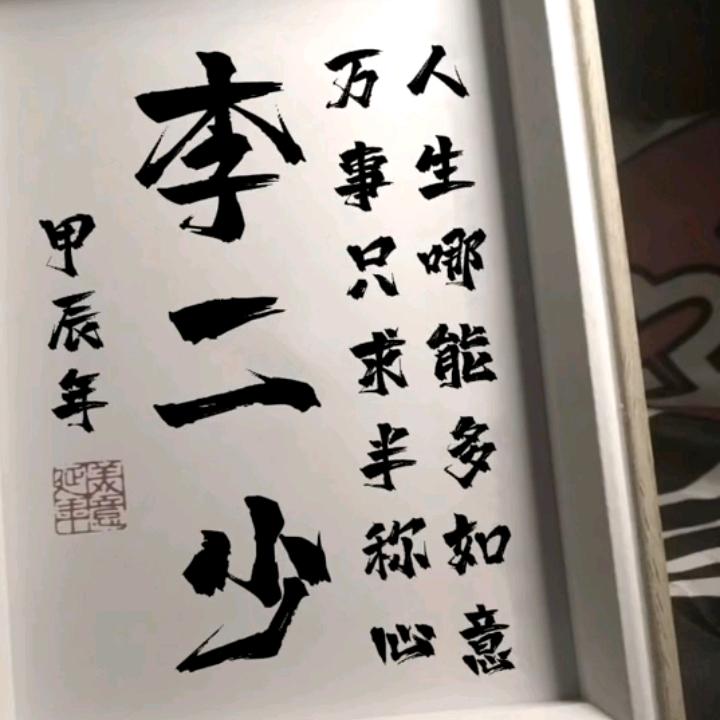 人生哪能多如意
万事只求半称心
李二少
甲辰年
美意延年